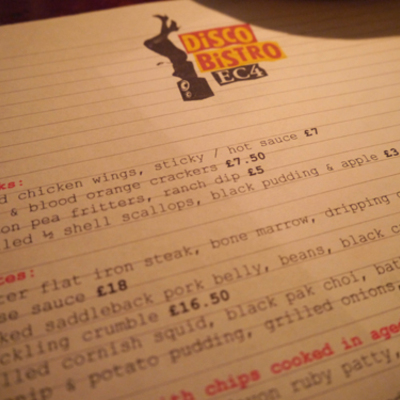 DiSCO
BiSTRO
EC4
ks:
d chicken wings, sticky / hot sauce £7
& blood orange crackers £7.50
on pea fritters, ranch dip £5
led ½ shell scallops, black pudding & apple £3
tes:
er flat iron steak, bone marrow, dripping
se sauce £18
ked saddleback pork belly, beans, black
ckling crumble £16.50
lled cornish squid, black pak choi,
nip & potato pudding, grilled onions,
with chips cooked in aged
mon ruby patty,